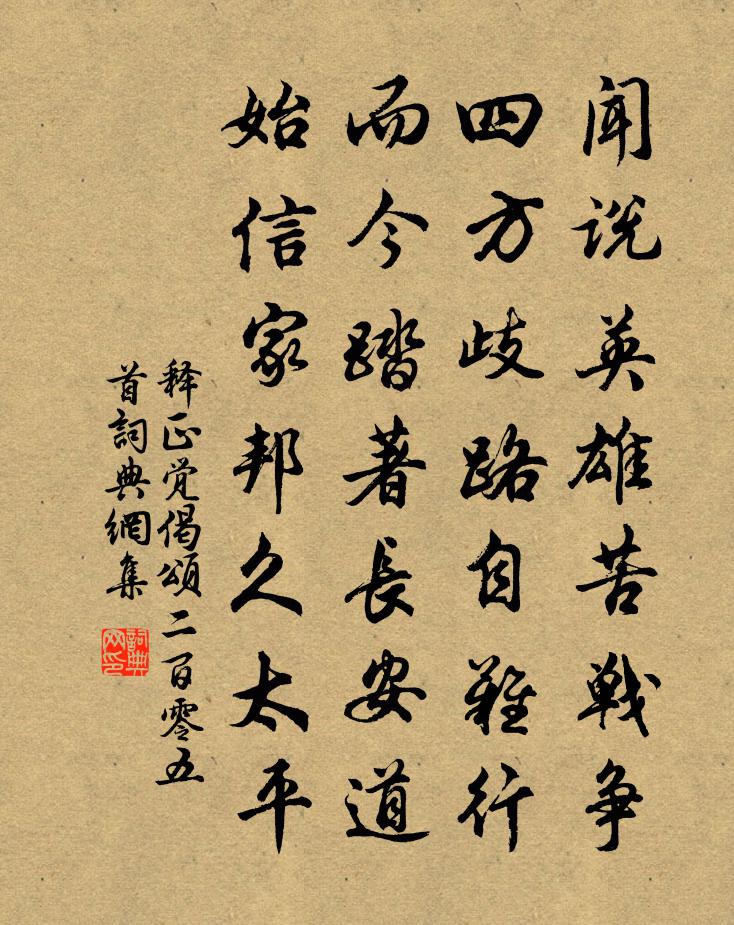 闻说英雄苦战争
四方歧路自难行
而今踏著長安道
始信家邦久太平
释正觉偈頌二百零五
首詞典網集
詞典网印